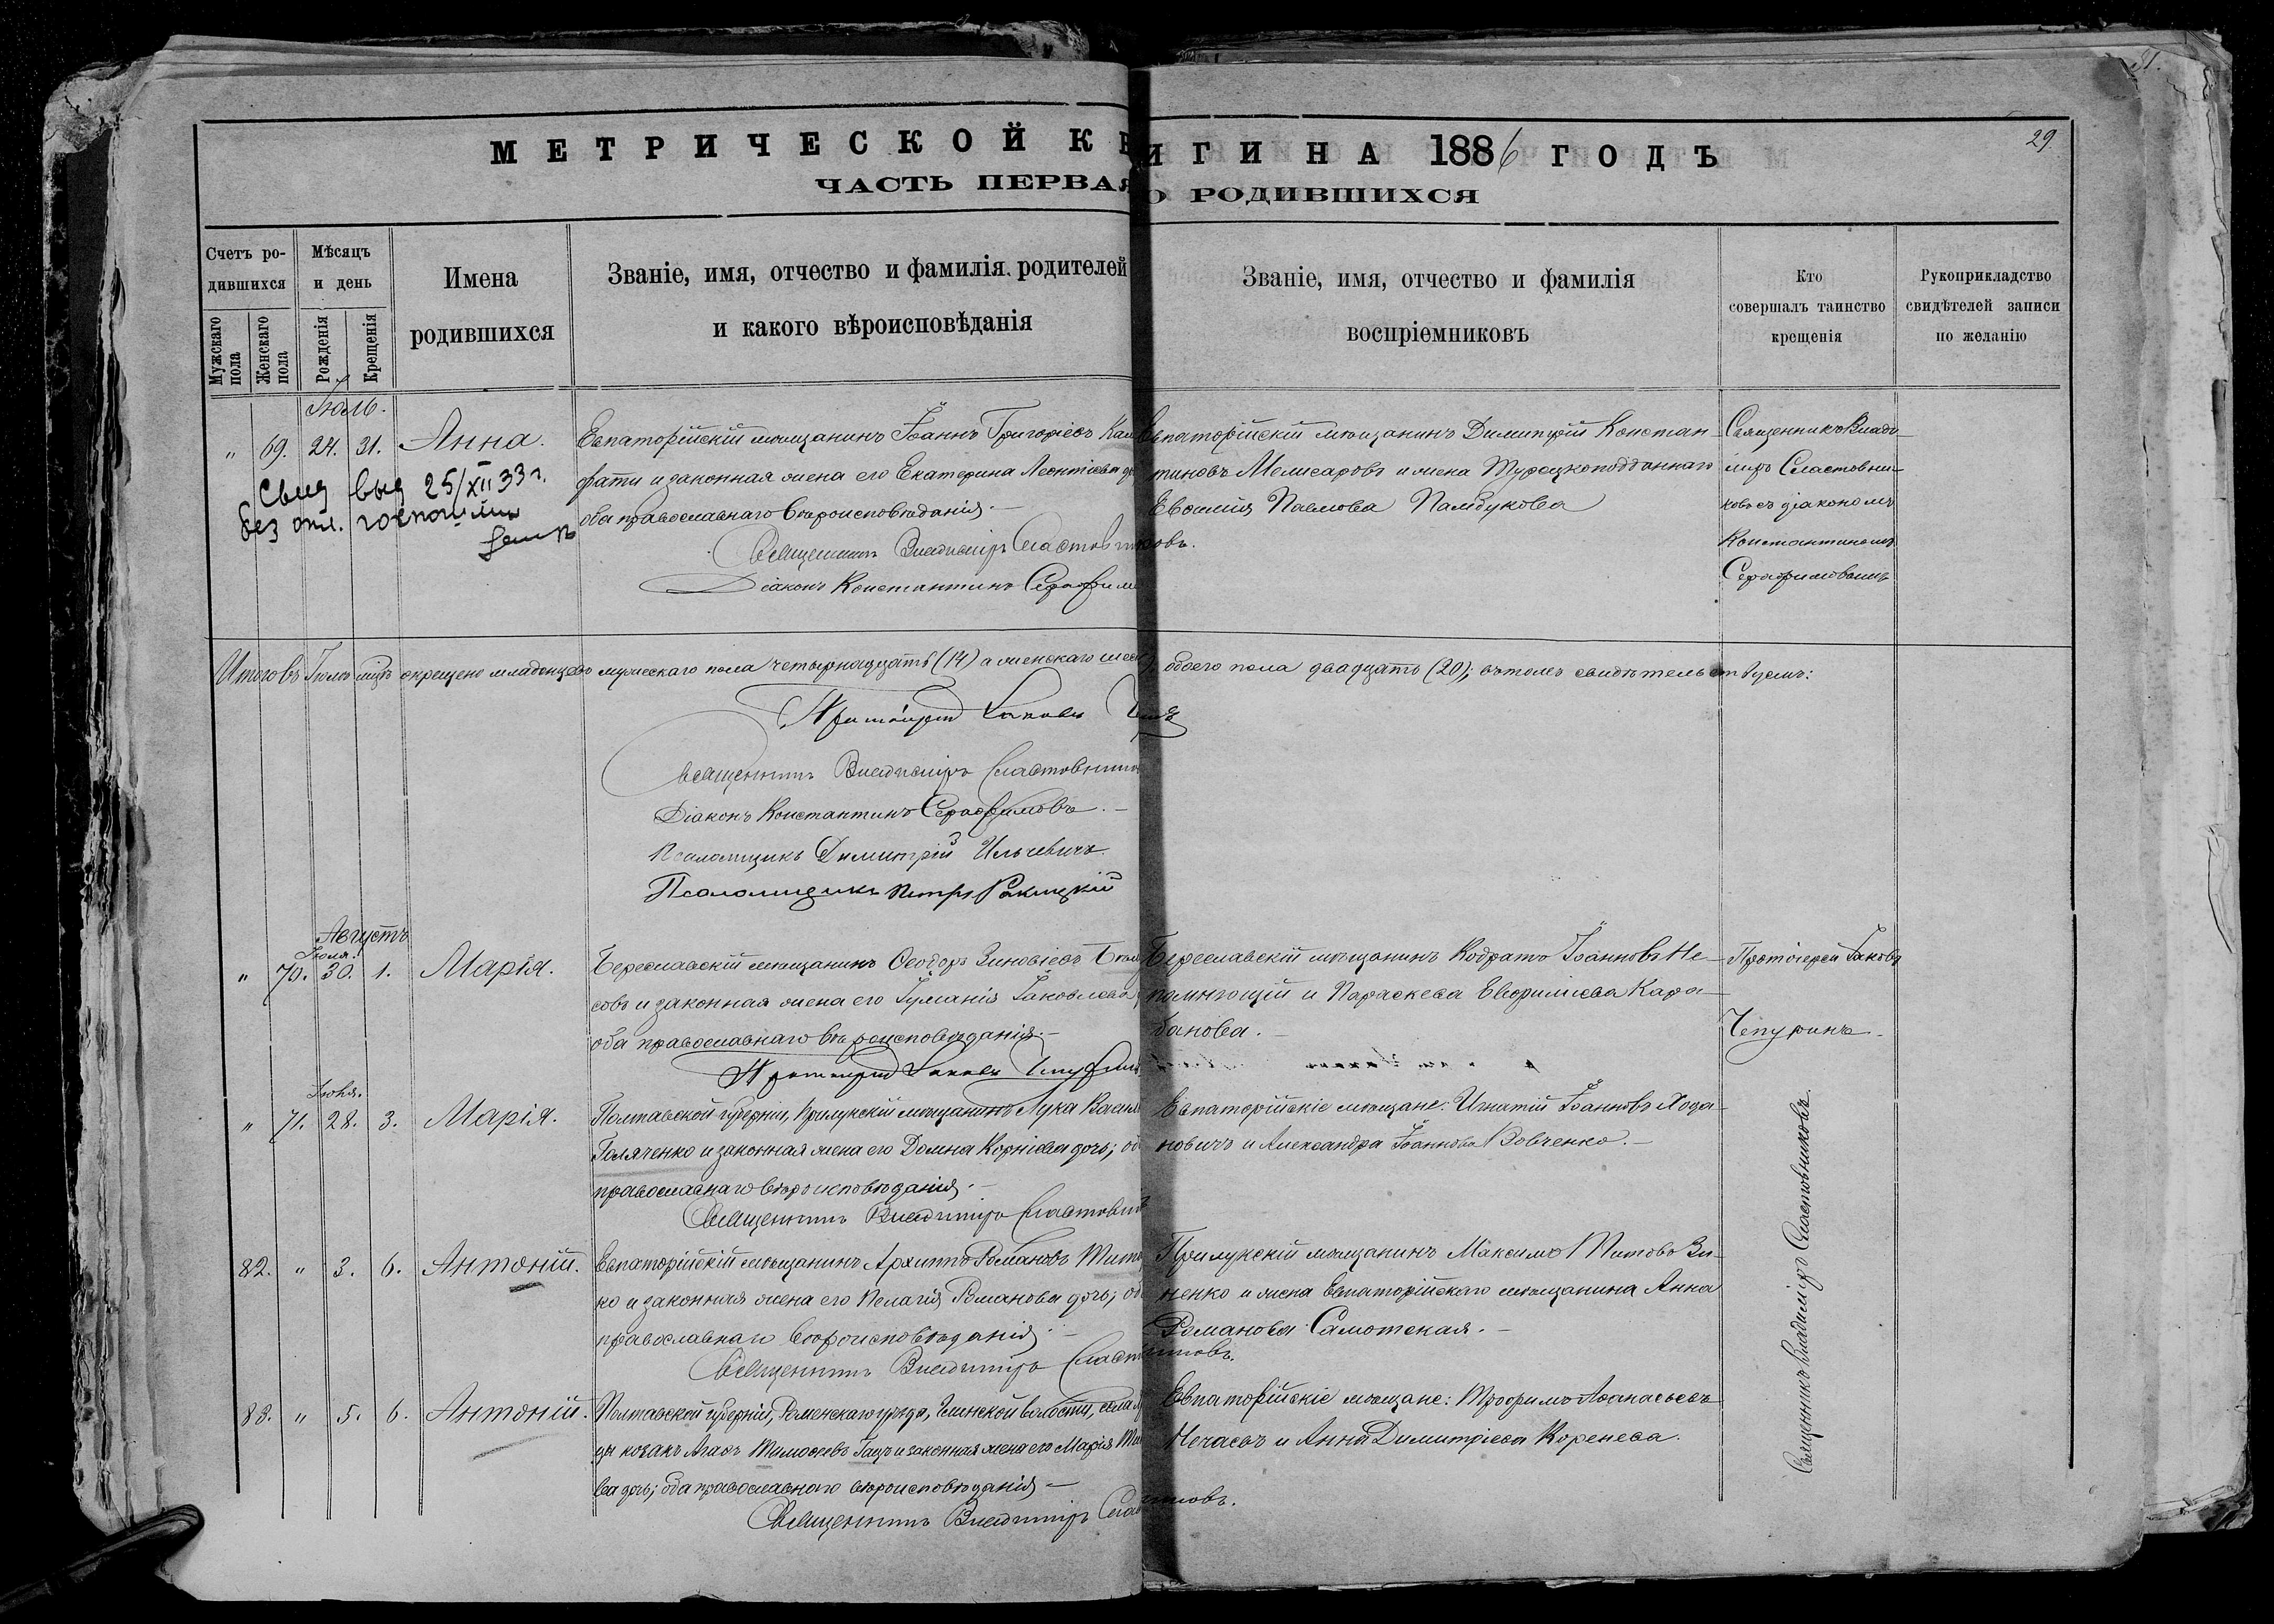 МЕТРИЧЕСКОЙ КН
ИГИ НА 1886 ГОДЪ
29
ЧАСТЬ ПЕРВАЯ
О РОДИВШИХСЯ
Счетъ ро-
дившихся
Мужскаго пола
Женскаго пола
Мѣсяцъ
и день
Рожденія
Крещенія
Имена
родившихся
Званіе, имя, отчество и фамилія родителей
и какого вѣроисповѣданія
Званіе, имя, отчество и фамилія
воспріемниковъ
Кто
совершалъ таинство
крещенія
Рукоприкладство
свидѣтелей записи
по желанію
Іюль.
" 69. 24. 31. Анна.
Свид выд 25/XII 33 г.
без опл. госпошлины
Евпаторійскій мѣщанинъ Іоаннъ Григоріевъ
фати и законная жена его Екатерина Леонтіева
оба православнаго вѣроисповѣданія.
Священникъ Владиміръ Сластовниковъ.
Діаконъ Константинъ Серафим
Евпаторійскій мѣщанинъ Димитрій Констан-
тиновъ Мелисаровъ и жена Турецкоподданнаго
Евѳимія Павлова Памбукова
Священникъ Влади-
міръ Сластовни-
ковъ съ діакономъ
Константиномъ
Серафимовымъ
Итого въ Іюлѣ м-цѣ окрещено младенцевъ мужескаго пола четырнадцать (14) а женскаго шес обоего пола двадцать (20); въ томъ свидѣтельствуемъ:
Протоіерей Іаковъ
Священникъ Владиміръ Сластовников
Діаконъ Константинъ Серафимовъ.
Псаломщикъ Димитрій Ильчевичъ.
Псаломщикъ Петръ Ракицкій
Августъ
Іюля.
" 70. 30. 1. Марія.
Береславскій мѣщанинъ Ѳеодоръ Зиновіевъ
совъ и законная жена его Іуліанія Іаковлева
оба православнаго вѣроисповѣданія.
Протоіерей Іаковъ Чепурин
Береславскій мѣщанинъ Кодратъ Іоанновъ Не-
помнющій и Параскева Евфиміева Кара-
банова.
Протоіерей Іаковъ
Чепуринъ.
" 71. 28. 3. Марія.
Полтавской губерніи, Прилукскій мѣщанинъ Лука Васил
Голяченко и законная жена его Домна Корніева дочь; об
православнаго вѣроисповѣданія.
Священникъ Владиміръ Сластовник
Евпаторійскіе мѣщане: Игнатій Іоанновъ Хода-
новичъ и Александра Іоаннова Вовченко.
82. " 3. 6. Антоній.
Евпаторійскій мѣщанинъ Архиппъ Романовъ Тит
ко и законная жена его Пелагія Романова дочь; об
православнаго вѣроисповѣданія.
Священникъ Владиміръ Сластовниковъ.
Прилукскій мѣщанинъ Максимъ Титовъ Зи-
ненко и жена Евпаторійскаго мѣщанина Анна
Романова Самотская.
83. " 5. 6. Антоній.
Полтавской губерніи, Роменскаго уѣзда, Глинской волости, села
цы козакъ Агаѳ Тимоѳеевъ Гацъ и законная жена его Марія
ва дочь; оба православнаго вѣроисповѣданія
Священникъ Владиміръ Сластовниковъ.
Евпаторійскіе мѣщане: Трофимъ Аѳанасьевъ
Нечаевъ и Анна Димитріева Коренева.
Священникъ Владиміръ Сластовниковъ.